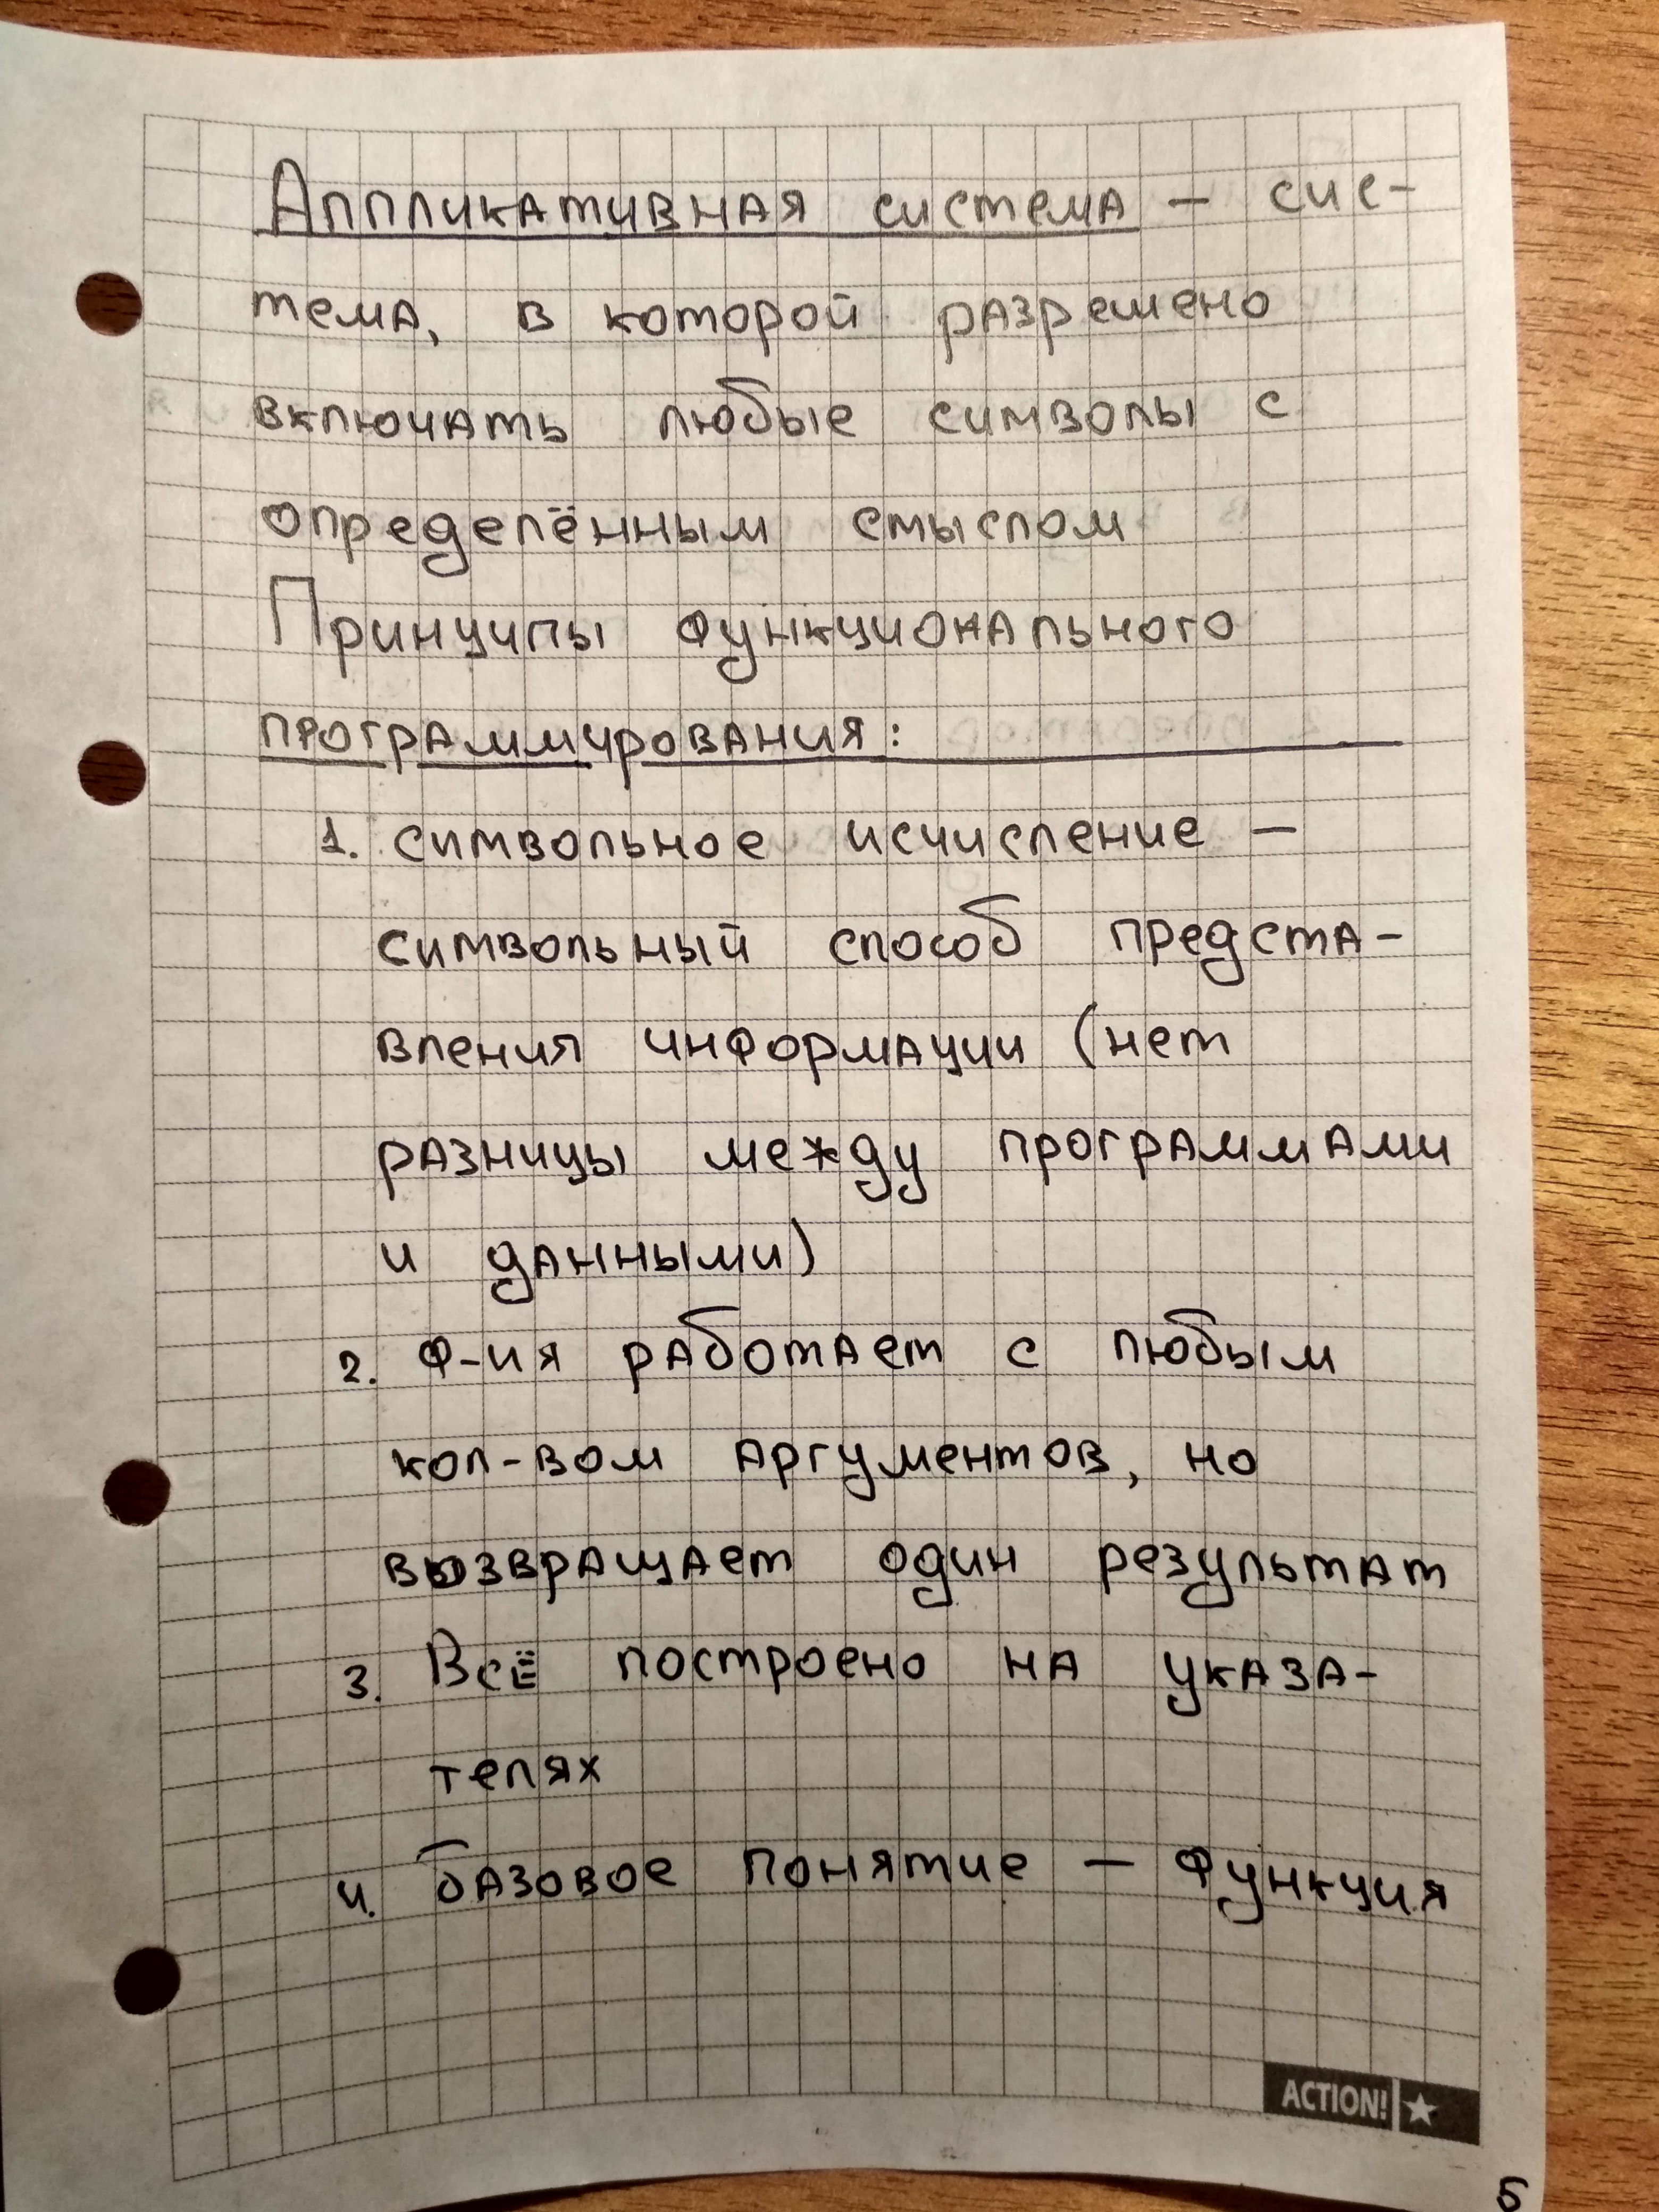 Аппликативная система – сис-
тема, в которой разрешено
включать любые символы с
определённым смыслом
Принципы функционального
программирования:
1. символьное исчисление –
символьный способ предста-
вления информации (нет
разницы между программами
и данными)
2. Ф-ия работает с любым
кол-вом аргументов, но
возвращает один результат
3. Всё построено на указа-
телях
4. базовое понятие – функция
ACTION!
5